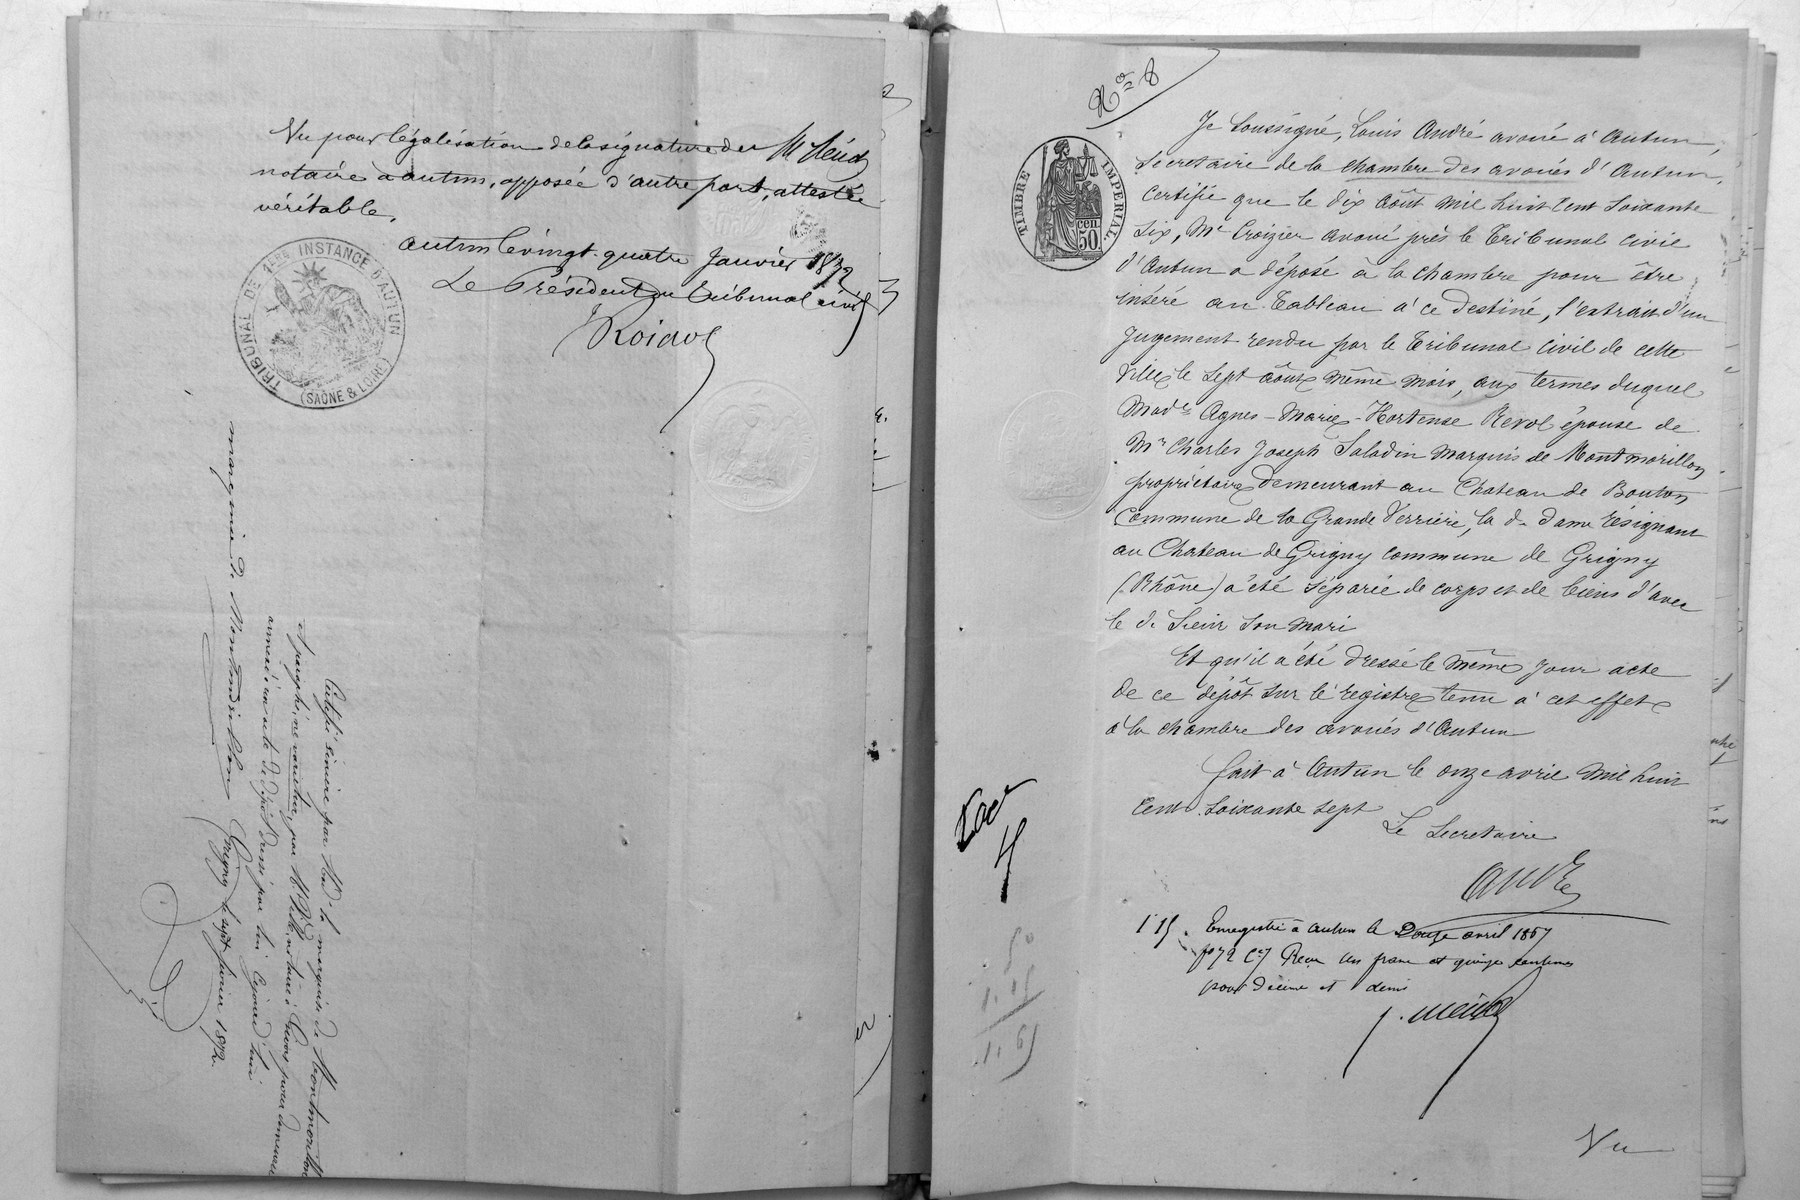 Vu pour légalisation de la signature de Me
notaire à autun, apposée d'autre part, attestée
véritable.
autun le vingt-quatre Janvier 1872
Le Président du Tribunal civil
TRIBUNAL DE 1ERE INSTANCE D'AUTUN
(SAÔNE & LOIRE)
Certifié sincère par Made la marquise de Montmorillon
et paraphé, ne varietur, par Me notaire à pour demeurer
annexé à un acte de dépôt dressé par lui cejourd'hui
Grigny le sept février 1872.
marquise de Montmorillon
No 8
TIMBRE IMPÉRIAL
50 cen.
Je soussigné, Louis André avoué à Autun,
Secrétaire de la chambre des avoués d'Autun,
Certifie que le dix Août mil huit cent soixante
six, Me Croizier avoué près le Tribunal civil
d'Autun a déposé à la chambre pour être
inséré au Tableau à ce destiné, l'extrait d'un
Jugement rendu par le Tribunal civil de cette
Ville le sept août même mois, aux termes duquel
Made Agnes-Marie-Hortense Revol épouse de
Mr Charles Joseph Saladin Marquis de Montmorillon
propriétaire demeurant au Chateau de Bouton
Commune de la Grande Verrière, la de dame résignant
au Chateau de Grigny commune de Grigny
(Rhône) a été séparée de corps et de biens d'avec
le d. Sieur son mari
Et qu'il a été dressé le même jour acte
de ce dépôt sur le registre tenu à cet effet
à la chambre des avoués d'Autun
fait à Autun le onze avril mil huit
Cent soixante sept
Le Secrétaire
André
1 15. Enregistré à Autun le Douze avril 1867
fo 72 Cn 7 Reçu un franc et quinze centimes
pour décime et demi
1.15
Vu